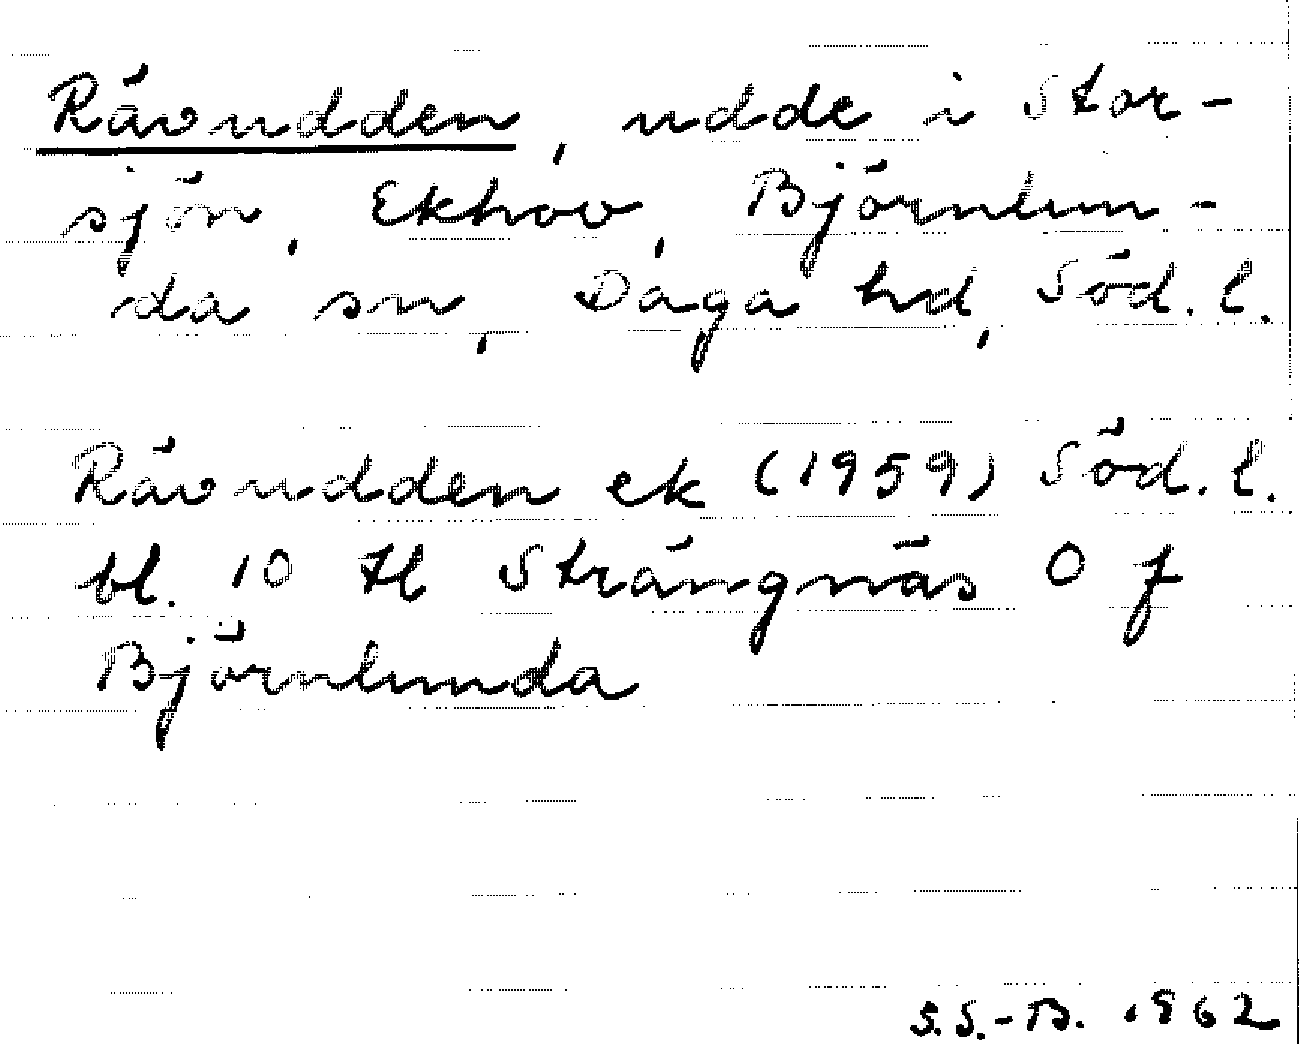 Rävudden, udde i Stor-
sjön, Ekhov, Björnlun-
da sn, Daga hd, Söd. l.
Rävudden ek (1959) Söd. l.
bl. 10 tl Strängnäs O f
Björnlunda
S.S.-B. 1962